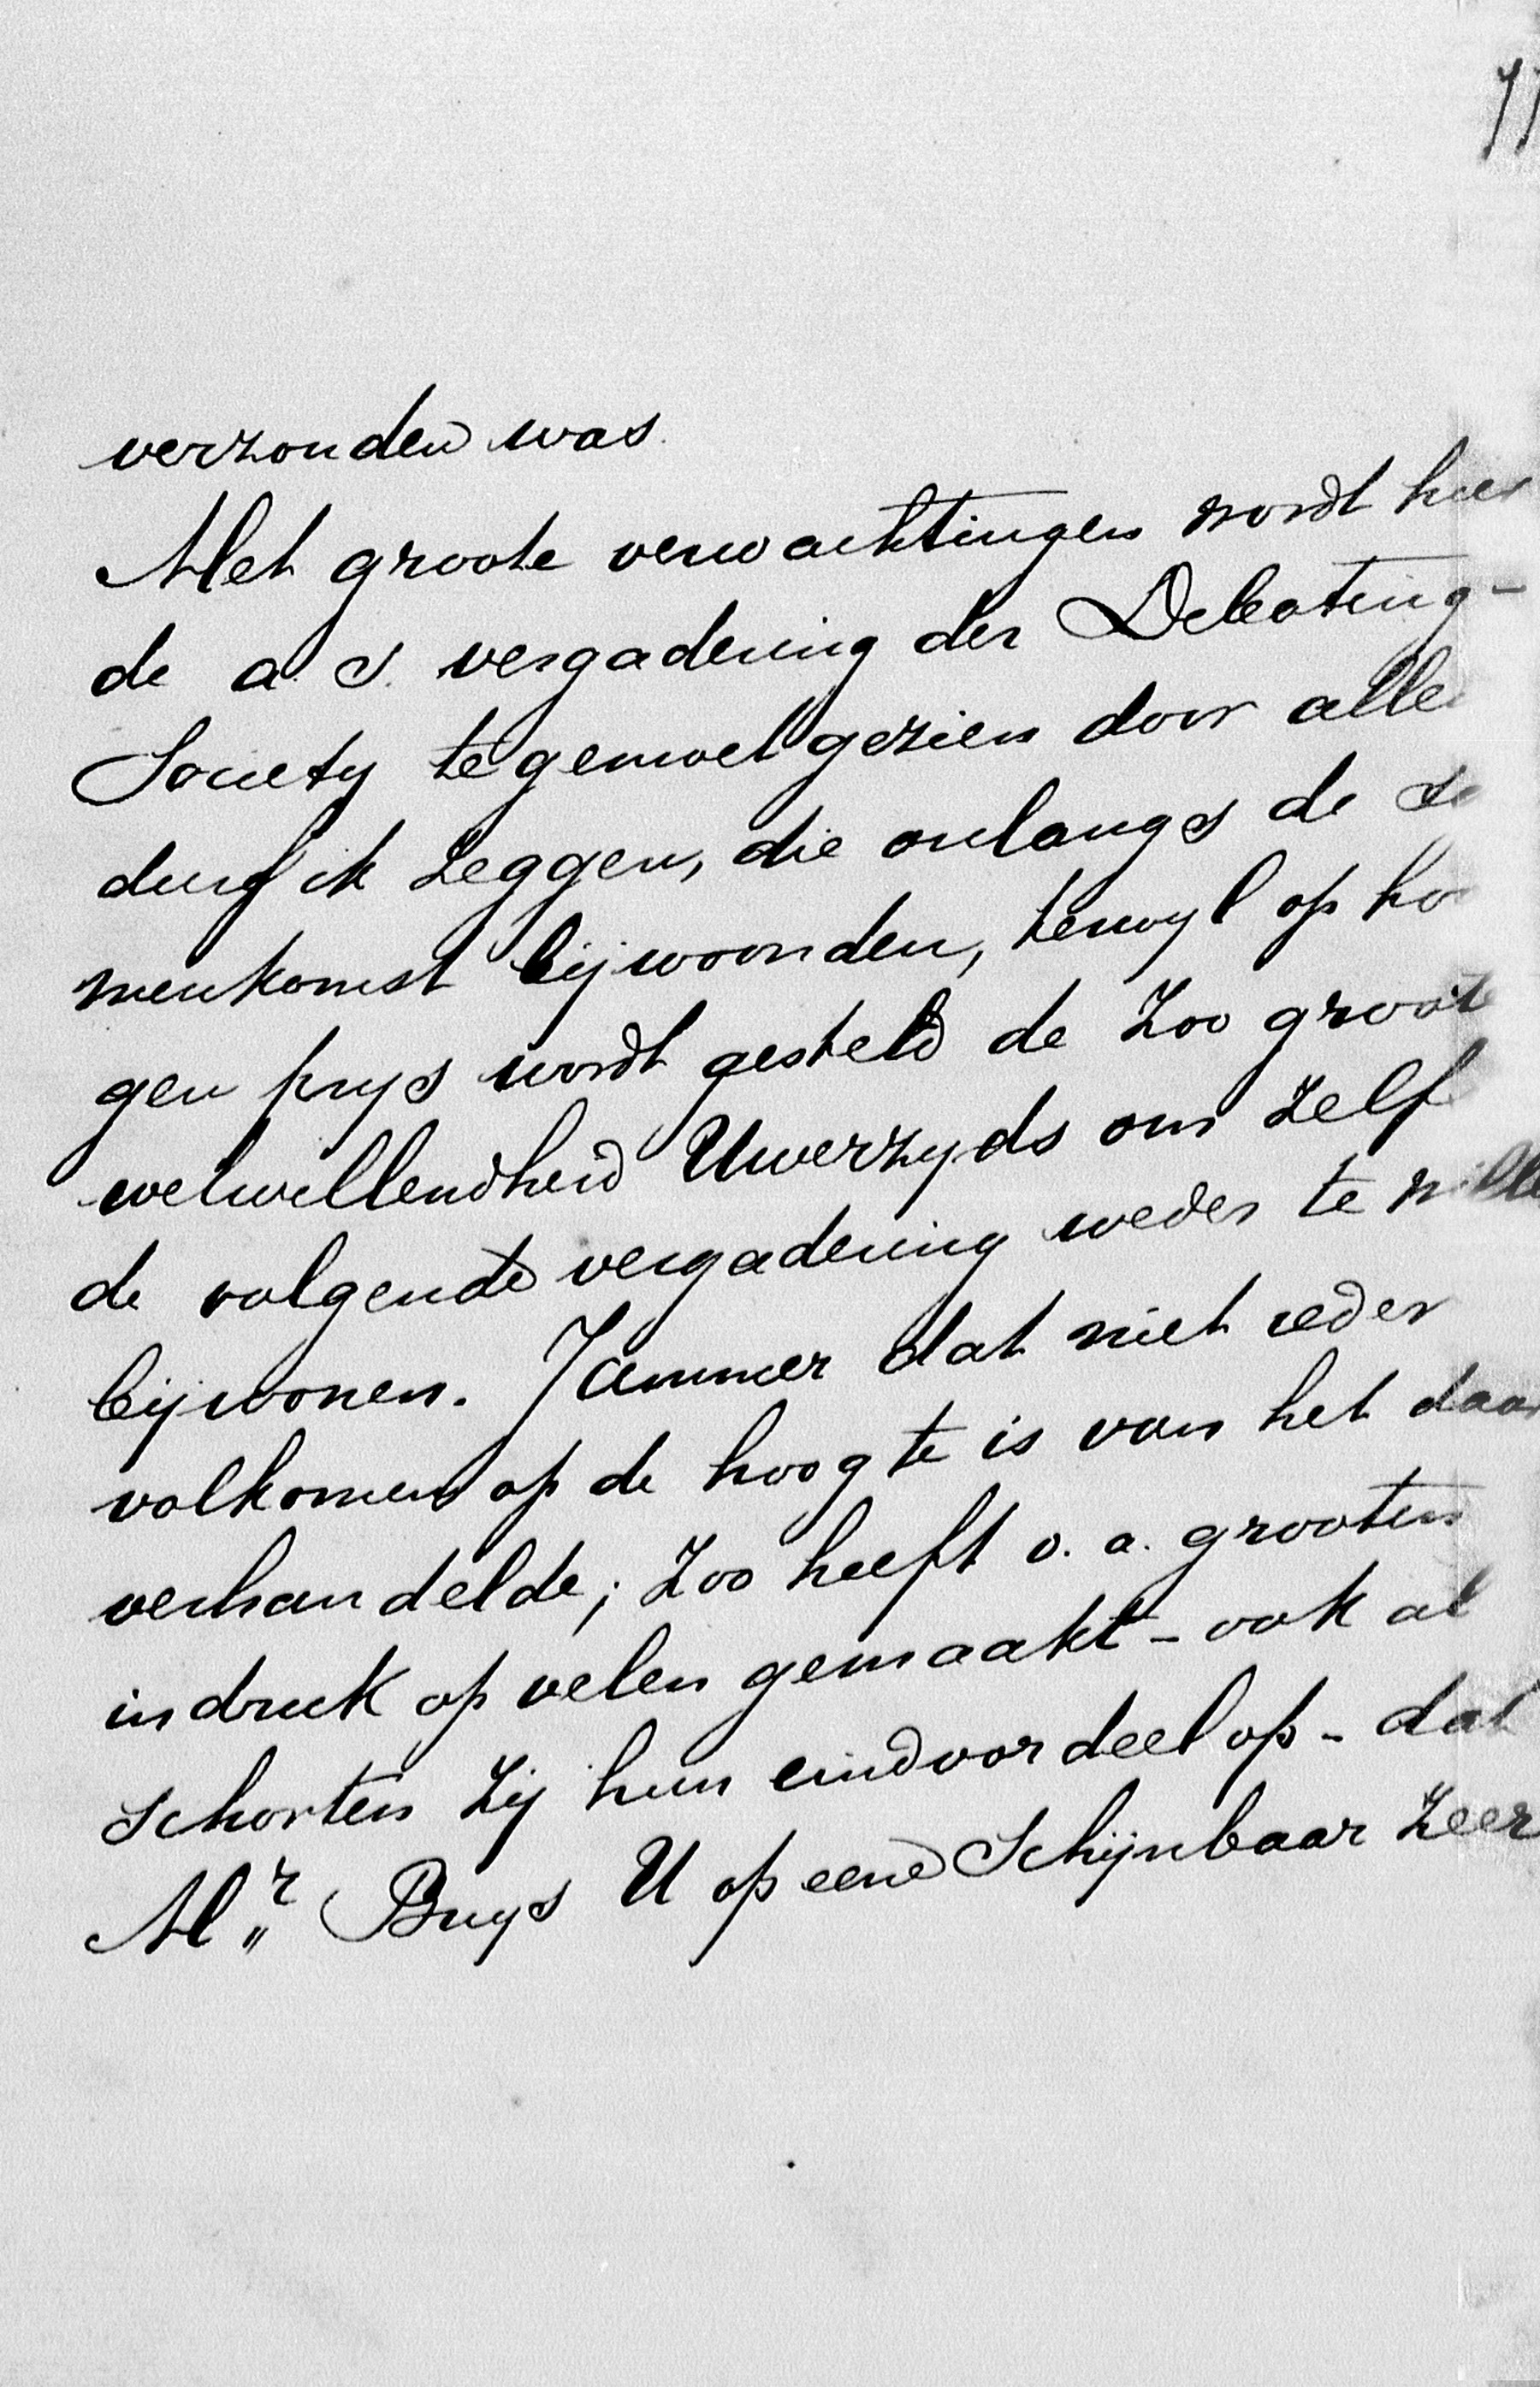 verzonden was.
Met groote verwachtingen wordt hier
de a. s. vergadering der Debating-
Society tegemoet gezien door alle
durf ik zeggen, die onlangs de
menkomst bijwoonden, terwyl op
gen prys wordt gesteld de zoo groote
welwillendheid Uwerzyds om zelf
de volgende vergadering weder te wille
bijwonen. Jammer dat niet ieder
volkomen op de hoogte is van het daar
verhandelde; zoo heeft o. a. grooten
indruk op velen gemaakt - ook al
schorten zij hun eindoordeel op - dat
Mr Buys U op eene schijnbaar zeer